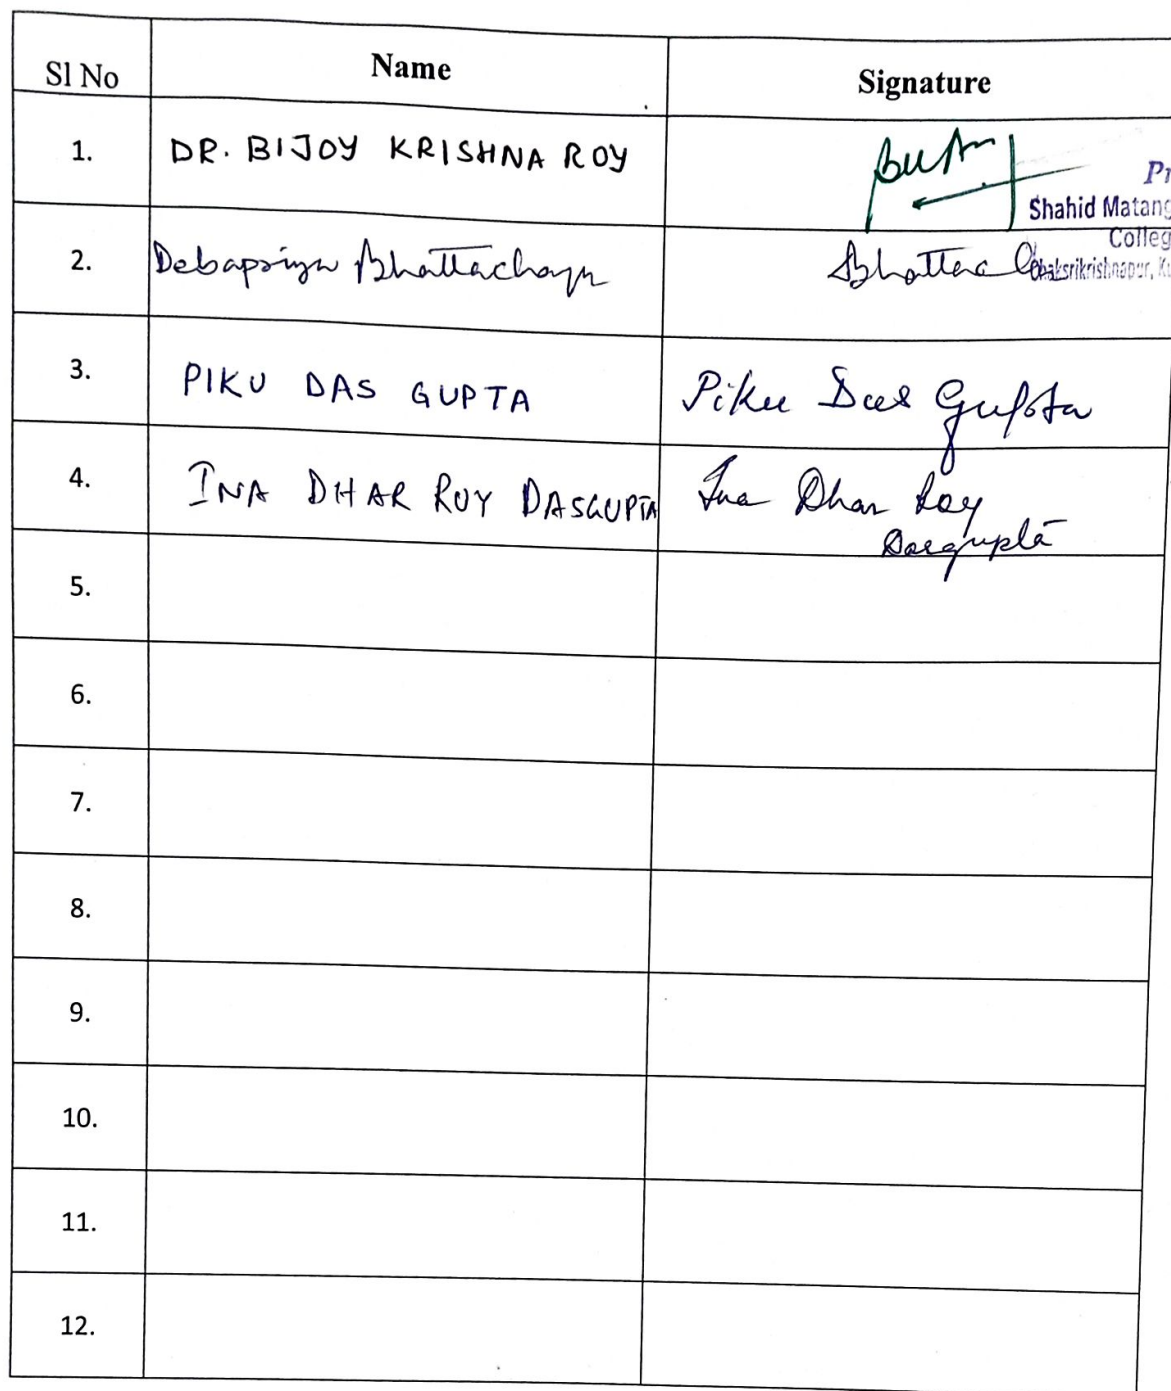 Sl No Name Signature
1. DR. BIJOY KRISHNA ROY
Pr
Shahid Matang
Colleg
2. Debapriya Bhattacharya Bhattac
Chaksrikrishnapur, Ku
3. PIKU DAS GUPTA Piku Das Gupta
4. INA DHAR ROY DASGUPTA Ina Dhar Roy
Dasgupta
5.
6.
7.
8.
9.
10.
11.
12.